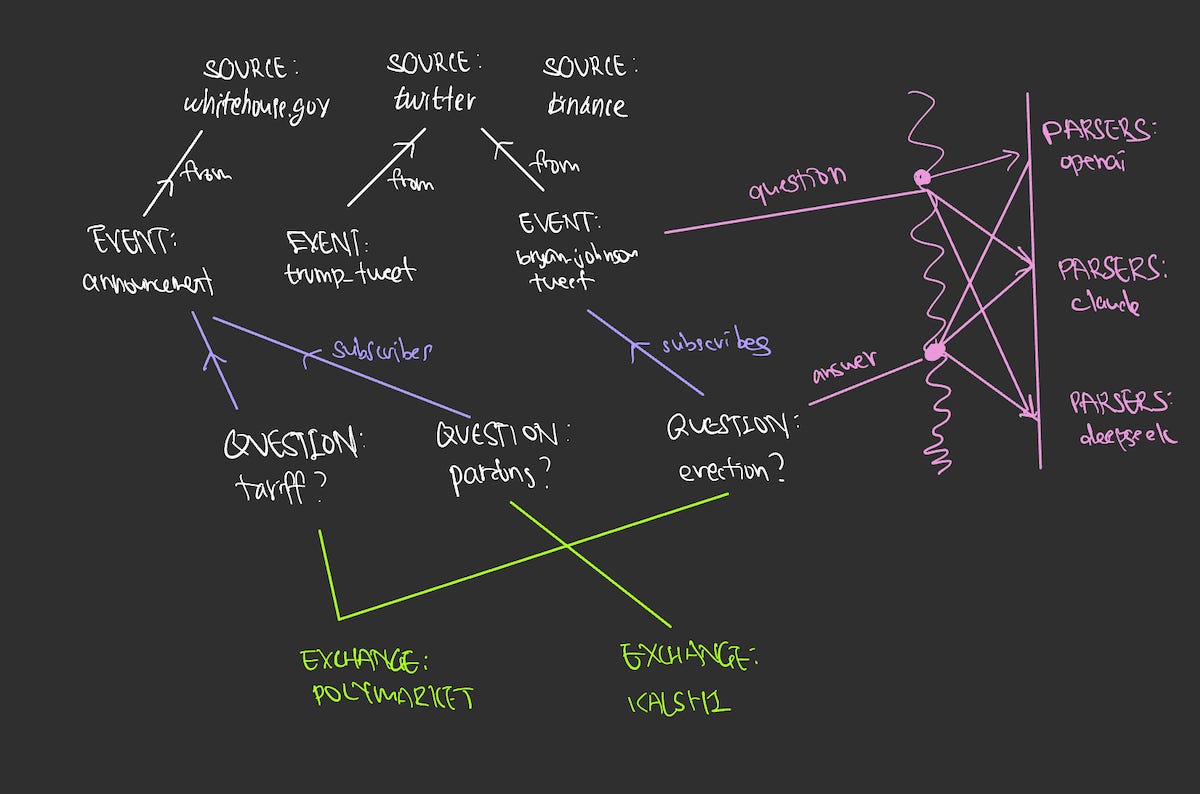 SOURCE:
whitehouse.gov
SOURCE:
twitter
SOURCE:
binance
from
from
from
EVENT:
announcement
EVENT:
trump_tweet
EVENT:
bryan_johnson
tweet
question
PARSERS:
openai
PARSERS:
claude
PARSERS:
deepseek
subscribes
subscribes
answer
QUESTION:
tariff?
QUESTION:
pardons?
QUESTION:
erection?
EXCHANGE:
POLYMARKET
EXCHANGE:
KALSHI